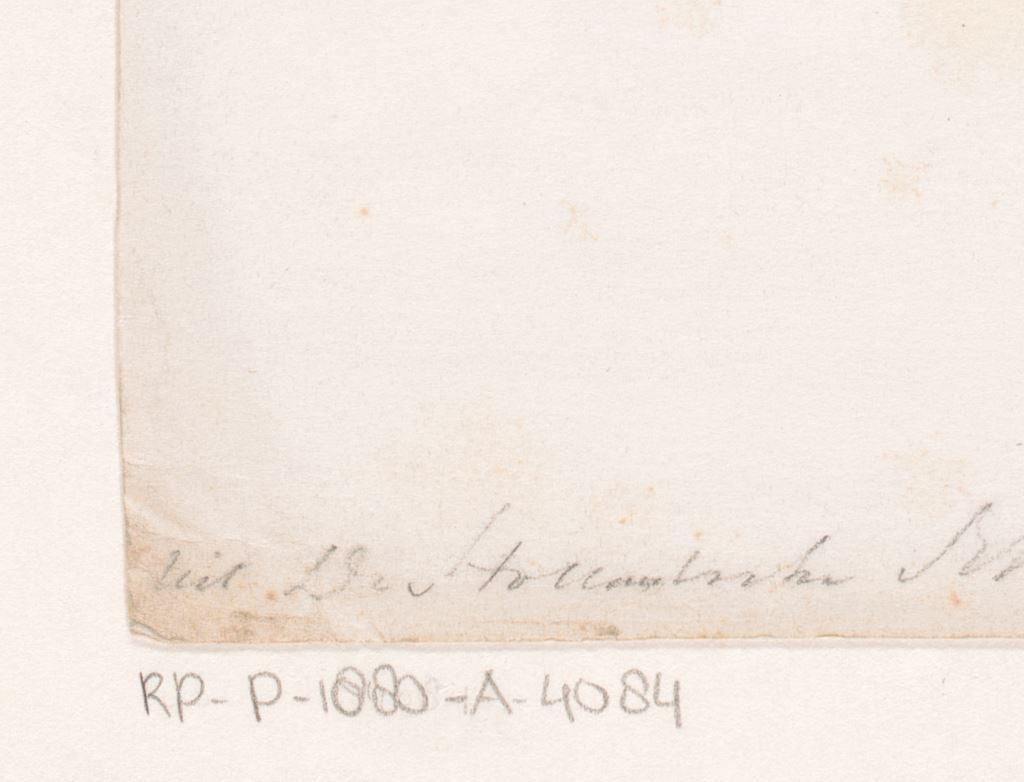 Uit De Hollandsche
RP-P-1880-A-4084